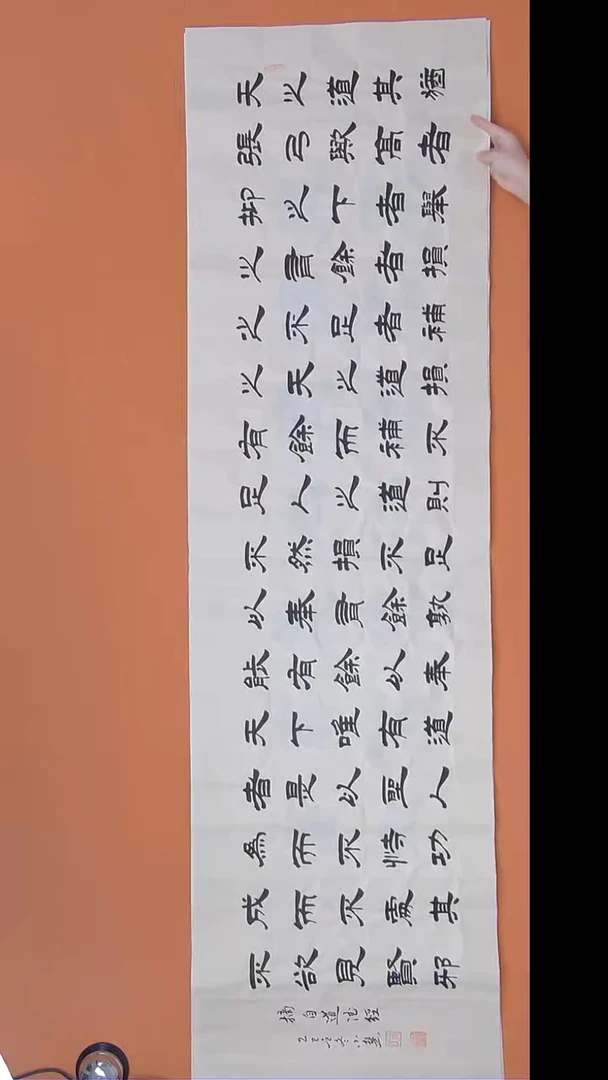 天之道其猶
張弓歟高者
抑之下者舉
之有餘者損
之不足者補
之天之道損
有餘而補不
足人之道則
不然損不足
以奉有餘孰
能有餘以奉
天下唯有道
者是以聖人
為而不恃功
成而不處其
不欲見賢邪
摘自道德經
乙巳冬小